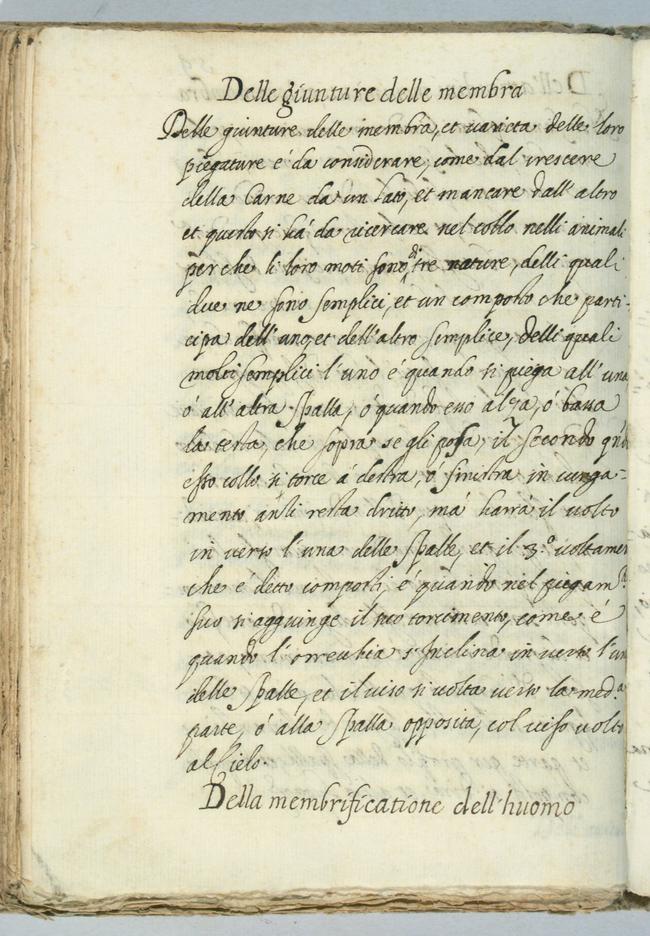 Delle giunture delle membra
Delle giunture delle membra, et varieta delle loro
piegature é da considerare, come dal crescere
della Carne da un lato, et mancare dall' altro
et questo si há da ricercare nel collo nelli animali
perche li loro moti sono di tre nature, delli quali
due ne sono semplici, et un composto che parti-
cipa dell' uno, et dell' altro semplice, delli quali
moti semplici l' uno é quando si piega all' una
ó all' altra spalla, ó quando esso alza, ó bassa
la testa, che sopra se gli posa, il secondo
esso collo si torce á destra, ó sinistra in
mento resta dritto, má harrá il volto
in verso l' una delle spalle, et il 3.º
che é detto é quando nel
suo si aggiunge il suo torcimento, come é
quando l' orecchia s' Inclina in verso l'
delle spalle, et il viso si volta verso la med.a
parte, ó alla spalla opposita, col viso volto
al Cielo.
Della membrificatione dell' huomo